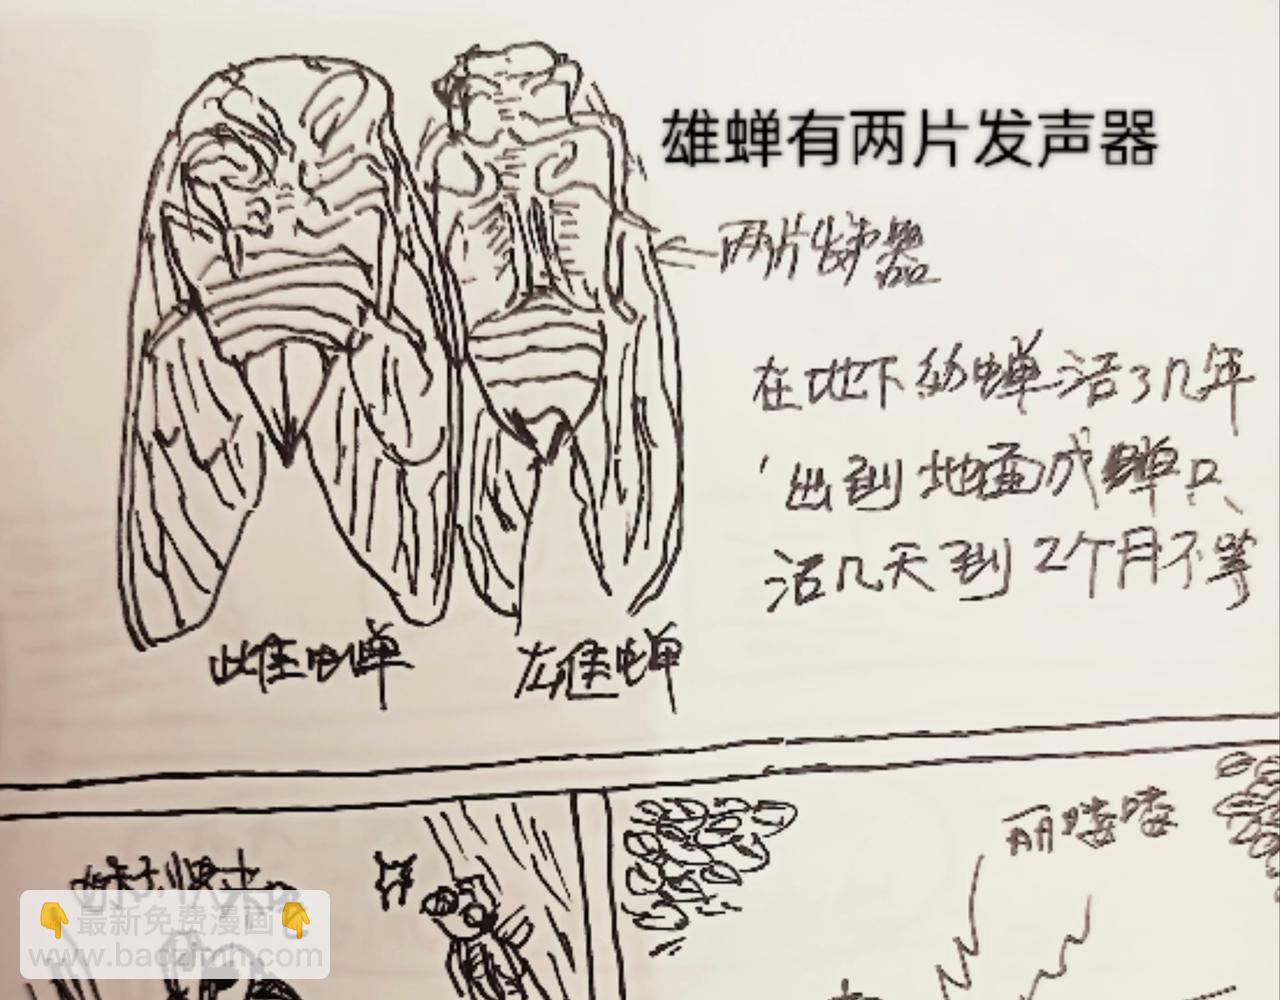 雄蝉有两片发声器
两片发声器
在地下幼蝉活了几年
出到地面成蝉只
活几天到2个月不等
雌蝉
雄蝉
👇最新免费漫画👇
www.baozimh.com